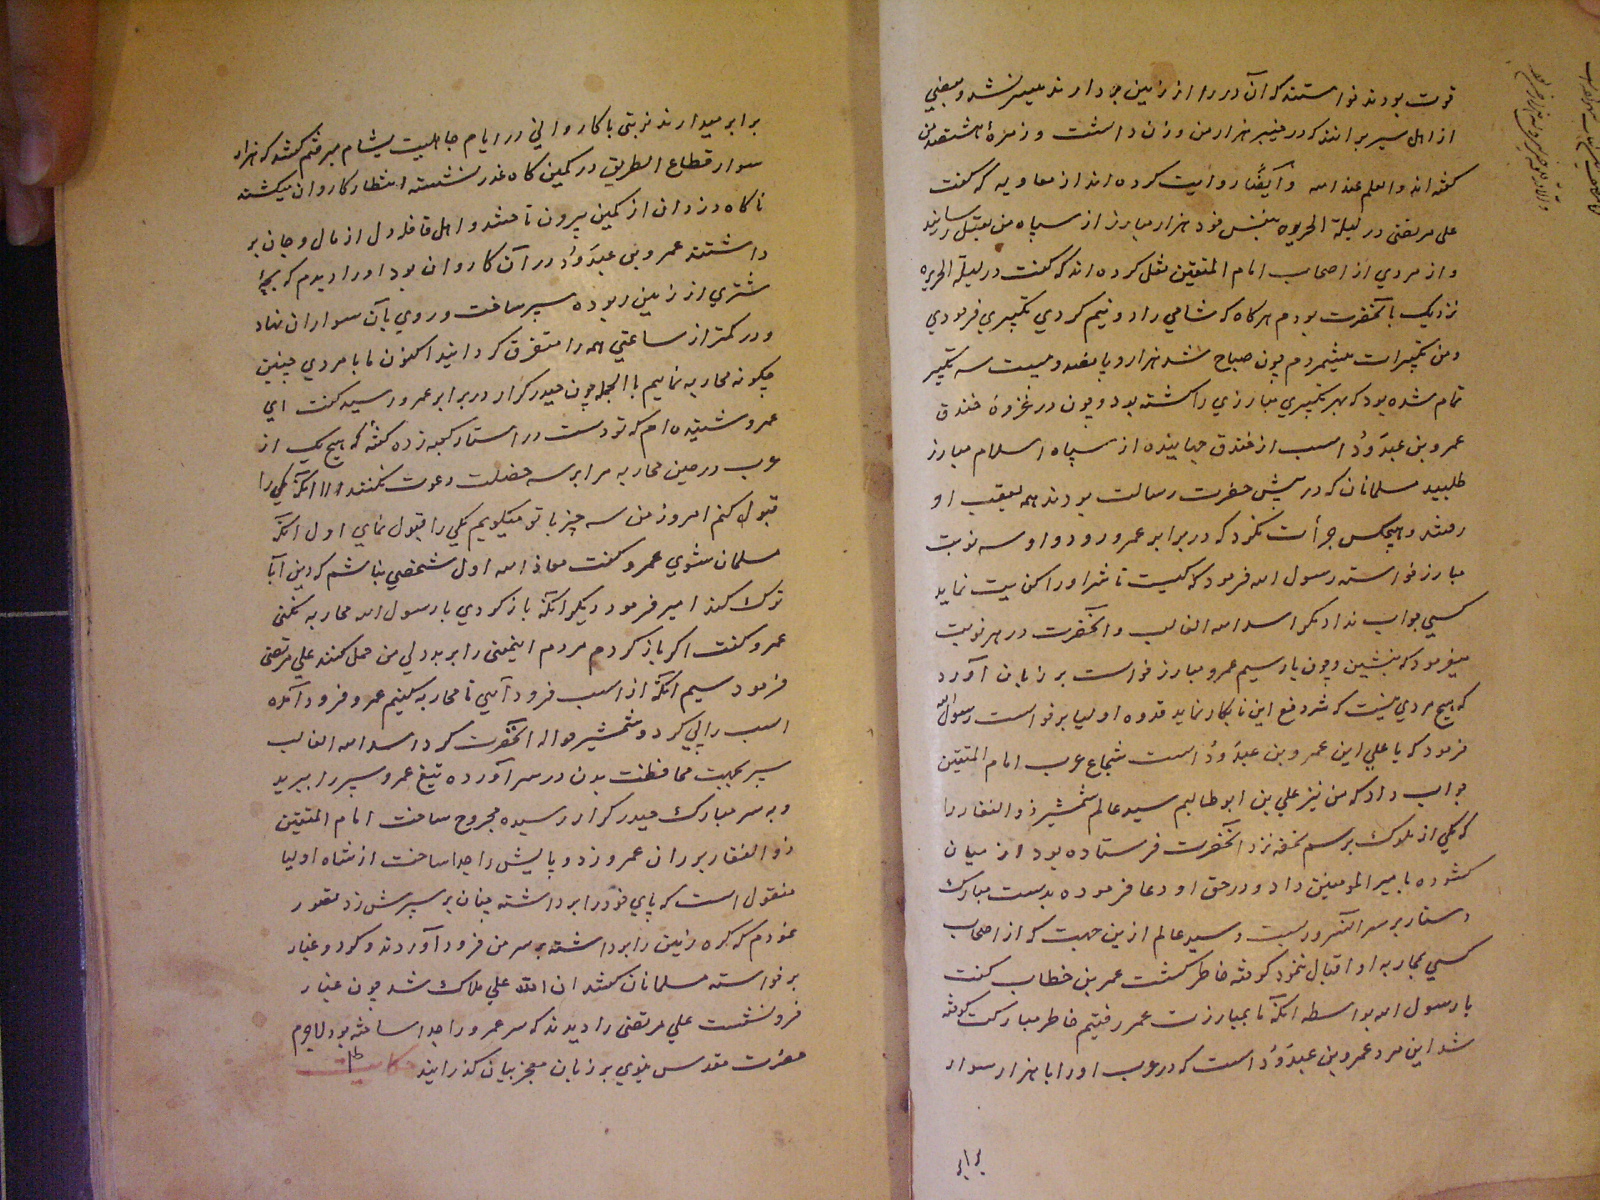 قوت بودند خواستند که آن در را از زمین بردارند میسر نشد و بعضی
از اهل سیر برانند که در خیبر هزار من وزن داشت و زمرهٔ هشتصد من
گفته اند والعلم عند الله وایضًا روایت کرده اند از معاویه که گفت
علی مرتضی در لیلة الحریره بنفس خود هزار مبارز از سپاه من بقتل رسانید
و از مردی از اصحاب امام المتقین نقل کرده اند که گفت در لیلة الحریره
نزدیک بآنحضرت بودم هرکاه که شامی را دو نیم کردی تکبیری فرمودی
و من تکبیرات میشمردم چون صباح شد هزار و پانصد و بیست سه تکبیر
تمام شده بود که بهر تکبیری مبارزی را کشته بود و چون در غزوهٔ خندق
عمرو بن عبدَوُد اسب از خندق جهانیده از سپاه اسلام مبارز
طلبید مسلمانان که در پیش حضرت رسالت بودند همه بعقب او
رفتند و هیچکس جرأت نکرد که در برابر عمرو رود و او سه نوبت
مبارز خواسته رسول الله فرمود که کیست تا شر او را کفایت نماید
کسی جواب نداد مکر اسد الله الغالب و آنحضرت در هر نوبت
میفرمود که بنشین و چون بار سیم عمرو مبارز خواست بر زبان آورد
که هیچ مردی نیست که شر دفع این نابکار نماید قدوه اولیا برخواست رسول الله
فرمود که یا علی این عمرو بن عبدَوُد است شجاع عرب امام المتقین
جواب داد که من نیز علی بن ابو طالبم سید عالم شمشیر ذو الفقار را
که یکی از ملوک برسم تحفه نزد آنحضرت فرستاده بود از میان
کشوده بامیر المومنین داد و در حق او دعا فرموده بدست مبارک
دستار بر سر آنسرور بست و سید عالم ازین جهت که از اصحاب
کسی بمحاربه او اقبال ننمود کوفته خاطر کشت عمر بن خطاب کفت
یا رسول الله بواسطه آنکه ما بمبارزت عمرو رفتیم خاطر مبارکت کوفته
شد این مرد عمرو بن عبدَوُد است که در عرب او را با هزار سوار
برابر
برابر میدارند نوبتی با کاروانی در ایام جاهلیت بشام میرفتیم کفتند که هزار
سوار قطاع الطریق در کمین کاه غدر نشسته انتظار کاروان میکشند
ناکاه دزدان از کمین بیرون تاختند و اهل قافله دل از مال و جان بر
داشتند عمرو بن عبدَوُد در آن کاروان بود او را دیدم که بچهٔ
شتری از زمین ربوده سپر ساخت و روی بآن سواران نهاد
و در کمتر از ساعتی همه را متفرق کردانید اکنون ما با مردی چنین
چکونه محاربه نماییم بالجمله چون حیدر کرار در برابر عمرو رسید کفت ای
عمرو شنیده ام که تو دست در استار کعبه زده کفتهٔ که هیچ یک از
عرب در حین محاربه مرا بر سه خصلت دعوت نکنند الا آنکه یکی را
قبول کنم امروز من سه چیز با تو میکویم یکی را قبول نمای اول آنکه
مسلمان شوی عمرو کفت معاذ الله اول شخصی نباشم که دین آبا
ترک کند امیر فرمود دیکر آنکه باز کردی با رسول الله محاربه نکنی
عمرو کفت اکر باز کردم مردم اینمعنی را بر بددلی من حمل کنند علی مرتضی
فرمود سیم آنکه از اسب فرود آیی تا محاربه کنیم عمرو فرود آمده
اسب را پی کرد و شمشیر حواله آنحضرت کرد اسد الله الغالب
سپر بجهت محافظت بدن در سر آورده تیغ عمرو سپر را ببرید
و به سر مبارک حیدر کرار رسیده مجروح ساخت امام المتقین
ذو الفقار بر ران عمرو زد و پایش را جدا ساخت از شاه اولیا
منقول است که پای خود را برداشته چنان بر سپرش زد تصور
نمودم که کره زمین را برداشته بر سر من فرود آوردند و کرد و غبار
برخواسته مسلمانان کفتند ان الله علی هلاک شد چون غبار
فرو نشست علی مرتضی را دیدند که سر عمرو را جدا ساخته بود لاجرم
حضرت مقدس نبوی بر زبان معجز بیان کذرانید